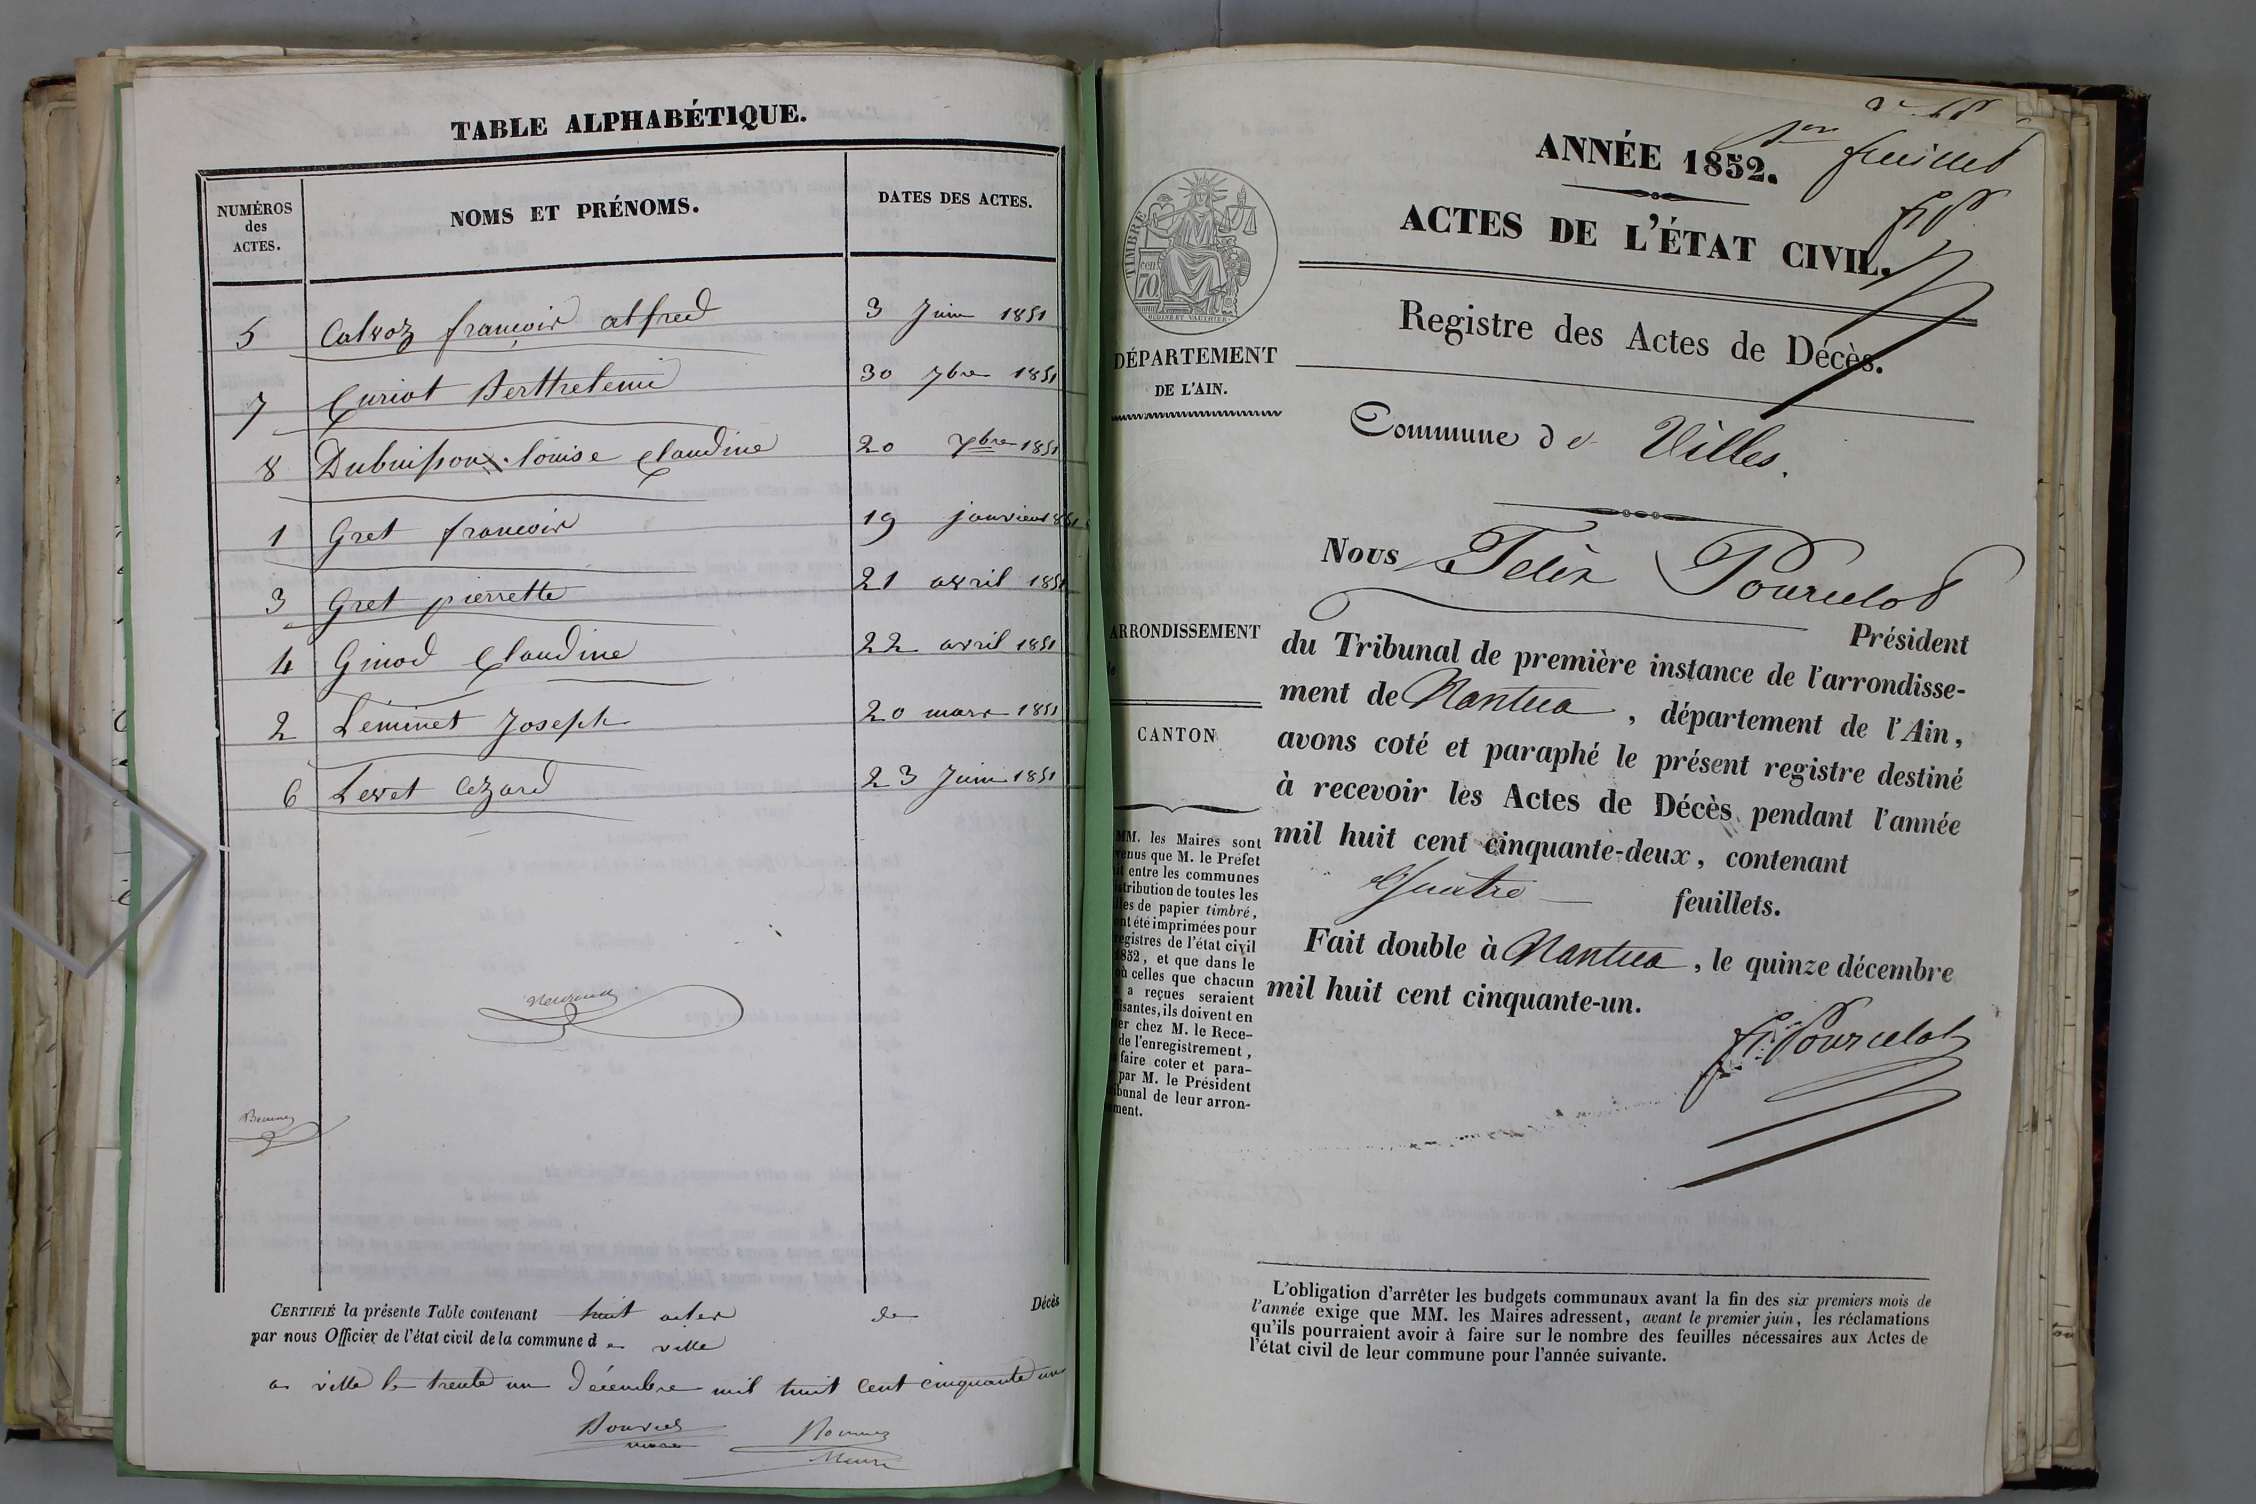 TABLE ALPHABÉTIQUE.
NUMÉROS des ACTES. NOMS ET PRÉNOMS. DATES DES ACTES.
5 Calvoz françois alfred 3 Juin 1851
7 Curiot Berthelemi 30 7bre 1851
8 Dubuisson louise Claudine 20 1851
1 Gret francois 19 janvier 1851
3 Gret pierrette 21 avril 1851
4 Ginod Claudine 22 avril 1851
2 Léminet Joseph 20 mars 1851
6 Levet Cezard 23 Juin 1851
CERTIFIÉ la présente Table contenant huit actes de Décès
par nous Officier de l'état civil de la commune d e ville
a ville le trente un décembre mil huit cent cinquante un
Bouvier
maire
1er feuillet
ANNÉE 1852.
ACTES DE L'ÉTAT CIVIL.
Registre des Actes de Décès.
TIMBRE
70
DÉPARTEMENT
DE L'AIN.
Commune de Villes.
Nous Félix Pourcelot
Président
du Tribunal de première instance de l'arrondisse-
ment de Nantua, département de l'Ain,
avons coté et paraphé le présent registre destiné
à recevoir les Actes de Décès pendant l'année
mil huit cent cinquante-deux, contenant
Quatre feuillets.
Fait double à Nantua, le quinze décembre
mil huit cent cinquante-un.
f. Pourcelot
ARRONDISSEMENT
CANTON
MM. les Maires sont
venus que M. le Préfet
it entre les communes
istribution de toutes les
les de papier timbré,
ont été imprimées pour
registres de l'état civil
1852, et que dans le
où celles que chacun
a reçues seraient
isantes, ils doivent en
er chez M. le Rece-
de l'enregistrement,
faire coter et para-
par M. le Président
ibunal de leur arron-
ment.
L'obligation d'arrêter les budgets communaux avant la fin des six premiers mois de
l'année exige que MM. les Maires adressent, avant le premier juin, les réclamations
qu'ils pourraient avoir à faire sur le nombre des feuilles nécessaires aux Actes de
l'état civil de leur commune pour l'année suivante.